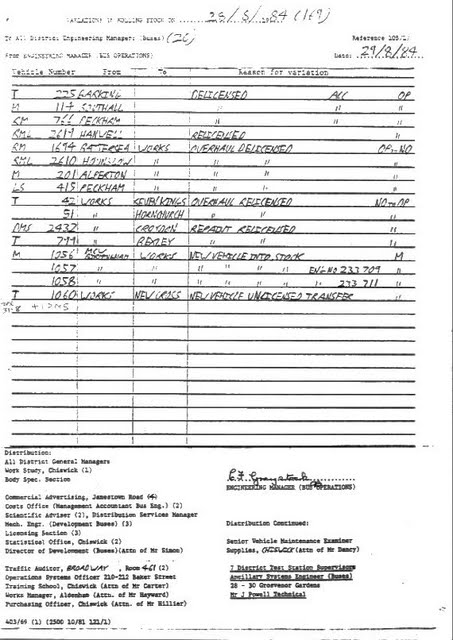 VARIATIONS IN ROLLING STOCK ON 28/8/1984 (169)
To All District Engineering Manager: (Buses) (26) Reference 105/1
FROM ENGINEERING MANAGER (BUS OPERATIONS) Date: 29/8/84
Vehicle Number From To Reason for variation
T 225 BARKING DELICENSED ACC OP
M 114 SOUTHALL " " "
RM 766 PECKHAM " " "
RML 2619 HANWELL RELICENSED "
RM 1694 BATTERSEA WORKS OVERHAUL DELICENSED OP to NO
RML 2610 HOUNSLOW " " " "
M 201 ALPERTON " " " "
LS 415 PECKHAM " " " "
T 42 WORKS SEVEN KINGS OVERHAUL RELICENSED NO to OP
51 " HORNCHURCH " " "
DMS 2432 " CROYDON REPAINT RELICENSED "
T 799 " BEXLEY " " "
M 1056 MCW BIRMINGHAM WORKS NEW VEHICLE INTO STOCK M
1057 " " " " " " ENG NO 233 709 "
1058 " " " " " " 233 711 "
T 1060 WORKS NEW CROSS NEW VEHICLE UNLICENSED TRANSFER "
Distribution:
All District General Managers
Work Study, Chiswick (1)
Body Spec. Section
ENGINEERING MANAGER (BUS OPERATIONS)
Commercial Advertising, Jamestown Road (4)
Costs Office (Management Accountant Bus Eng.) (2)
Scientific Adviser (2), Distribution Services Manager
Mech. Engr. (Development Buses) (3)
Licensing Section (3)
Statistical Office, Chiswick (2)
Director of Development (Buses)(Attn of Mr Simon)
Distribution Continued:
Senior Vehicle Maintenance Examiner
Supplies, CHISWICK (Attn of Mr Dancy)
Traffic Auditor, BROADWAY, Room 461 (2)
Operations Systems Officer 210-212 Baker Street
Training School, Chiswick (Attn. of Mr Carter)
Works Manager, Aldenham (Attn. of Mr Hayward)
Purchasing Officer, Chiswick (Attn of Mr Hillier)
7 District Test Station Supervisors
Ancillary Systems Engineer (Buses)
28 - 30 Grosvenor Gardens
Mr J Powell Technical
403/69 (1) (2500 10/81 121/1)